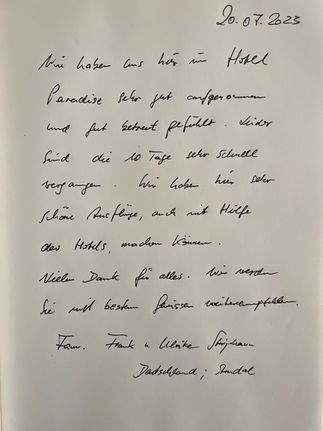 20.07.2023
Wir haben uns hier im Hotel
Paradise sehr gut aufgenommen
und gut betreut gefühlt. Leider
sind die 10 Tage sehr schnell
vergangen. Wir haben hier sehr
schöne Ausflüge, auch mit Hilfe
des Hotels, machen können.
Vielen Dank für alles. Wir werden
Sie mit bestem Gewissen weiterempfehlen.
Fam. Frank u. Ulrike
Deutschland;